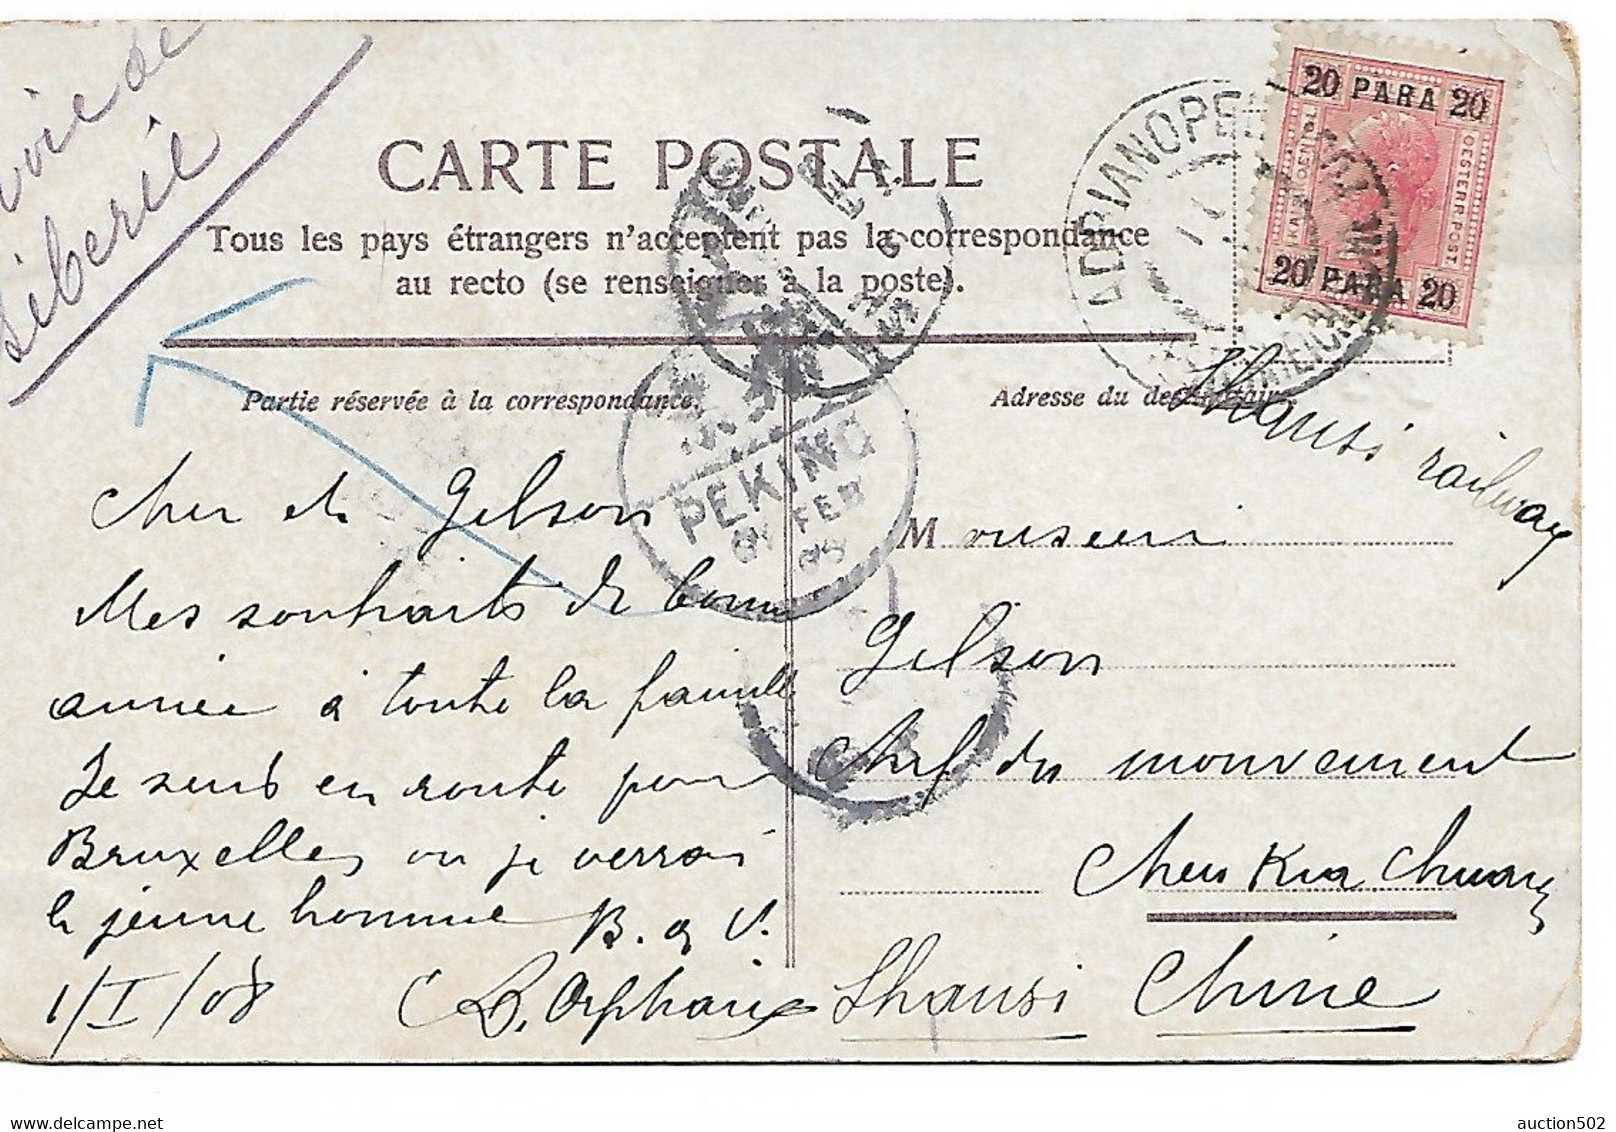 voie de
Siberie
CARTE POSTALE
Tous les pays étrangers n'acceptent pas la correspondance
au recto (se renseigner à la poste).
20 PARA 20
OESTERR. POST
20 PARA 20
ADRIANOPEL
Partie réservée à la correspondance.
Adresse du destinataire.
Shansi railway
PEKING
FEB
Cher Gilson
Mes souhaits de bonne
année à toute la famille
Je suis en route pour
Bruxelles ou je verrai
le jeune homme B. à V.
1/I/08
Monsieur
Gilson
Chef du mouvement
Chen Kia Chwang
Shansi Chine
auction502